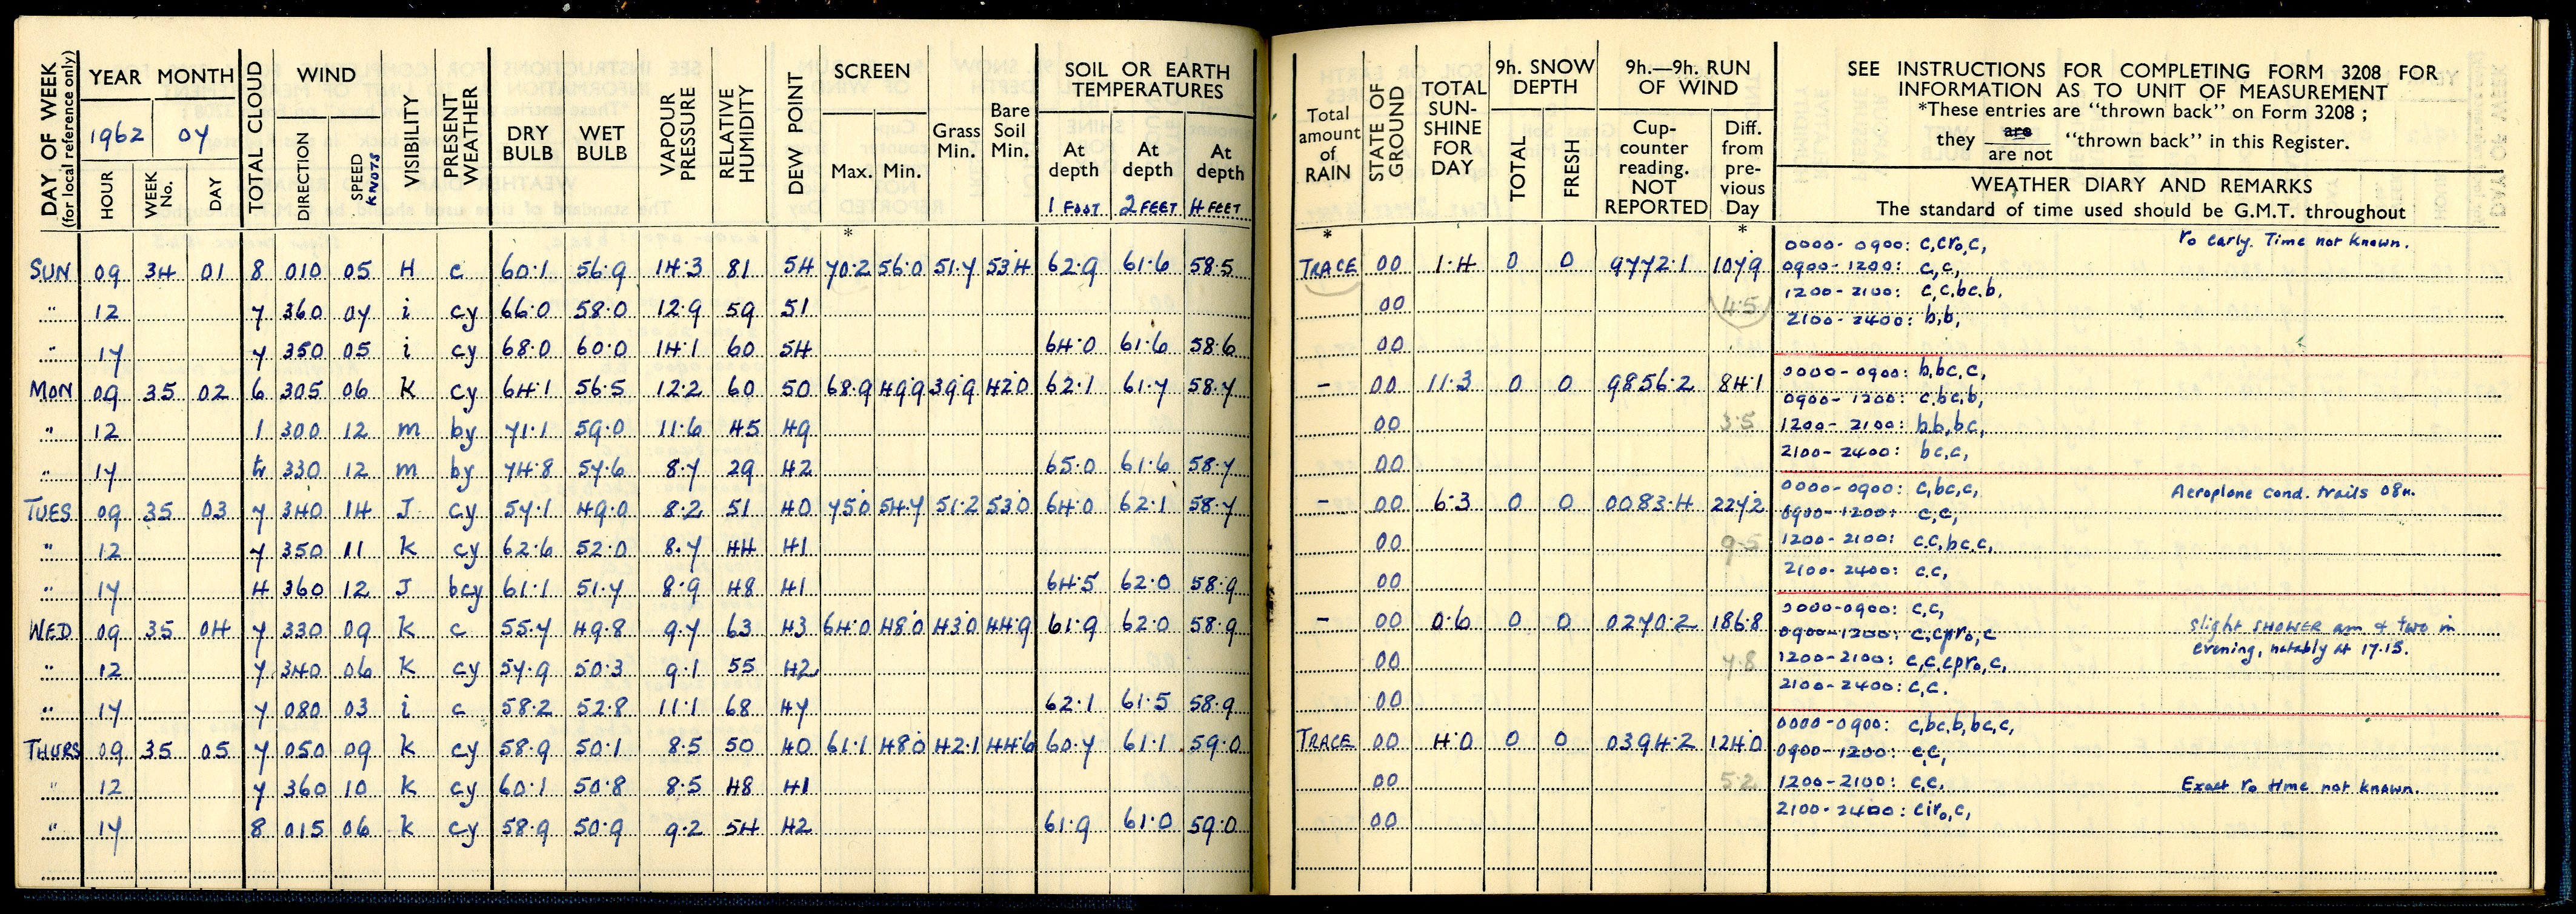 DAY OF WEEK (for local reference only)
YEAR MONTH
1962 07
HOUR WEEK No. DAY
TOTAL CLOUD
WIND
DIRECTION SPEED KNOTS
VISIBILITY
PRESENT WEATHER
DRY BULB WET BULB
VAPOUR PRESSURE
RELATIVE HUMIDITY
DEW POINT
SCREEN
Max. Min.
Grass Min.
Bare Soil Min.
SOIL OR EARTH TEMPERATURES
At depth At depth At depth
1 FOOT 2 FEET 4 FEET
Total amount of RAIN
STATE OF GROUND
TOTAL SUN-SHINE FOR DAY
9h. SNOW DEPTH
TOTAL FRESH
9h.—9h. RUN OF WIND
Cup-counter reading. NOT REPORTED
Diff. from pre-vious Day
SEE INSTRUCTIONS FOR COMPLETING FORM 3208 FOR
INFORMATION AS TO UNIT OF MEASUREMENT
*These entries are "thrown back" on Form 3208 ;
they are / are not "thrown back" in this Register.
WEATHER DIARY AND REMARKS
The standard of time used should be G.M.T. throughout
* * *
SUN 09 34 01 8 010 05 H c 60.1 56.9 14.3 81 54 70.2 56.0 51.7 53.4 62.9 61.6 58.5 TRACE 00 1.4 0 0 9772.1 107.9
" 12 7 360 07 i cy 66.0 58.0 12.9 59 51 00 4.5
" 17 7 350 05 i cy 68.0 60.0 14.1 60 54 64.0 61.6 58.6 00
0000-0900: c,cr₀,c, r₀ early. Time not known.
0900-1200: c,c,
1200-2100: c,c,bc,b,
2100-2400: b,b,
MON 09 35 02 6 305 06 K cy 64.1 56.5 12.2 60 50 68.9 49.9 39.9 42.0 62.1 61.7 58.7 - 00 11.3 0 0 9856.2 84.1
" 12 1 300 12 m by 71.1 59.0 11.6 45 49 00 3.5
" 17 tr 330 12 m by 74.8 57.6 8.7 29 42 65.0 61.6 58.7 00
0000-0900: b,bc,c,
0900-1200: c,bc,b,
1200-2100: b,b,bc,
2100-2400: bc,c,
TUES 09 35 03 7 340 14 J cy 57.1 49.0 8.2 51 40 75.0 54.7 51.2 53.0 64.0 62.1 58.7 - 00 6.3 0 0 0083.4 227.2
" 12 7 350 11 K cy 62.6 52.0 8.7 44 41 00 9.5
" 17 4 360 12 J bcy 61.1 51.7 8.9 48 41 64.5 62.0 58.9 00
0000-0900: c,bc,c, Aeroplane cond. trails 08h.
0900-1200: c,c,
1200-2100: c,c,bc,c,
2100-2400: c,c,
WED 09 35 04 7 330 09 K c 55.7 49.8 9.7 63 43 64.0 48.0 43.0 44.9 61.9 62.0 58.9 - 00 0.6 0 0 0270.2 186.8
" 12 7 340 06 K cy 57.9 50.3 9.1 55 42 00 7.8
" 17 7 080 03 i c 58.2 52.8 11.1 68 47 62.1 61.5 58.9 00
0000-0900: c,c,
0900-1200: c,cpr₀,c slight SHOWER am & two in
1200-2100: c,c,cpr₀,c, evening, notably at 17.15.
2100-2400: c,c.
THURS 09 35 05 7 050 09 K cy 58.9 50.1 8.5 50 40 61.1 48.0 42.1 44.6 60.7 61.1 59.0 TRACE 00 4.0 0 0 0394.2 124.0
" 12 7 360 10 K cy 60.1 50.8 8.5 48 41 00 5.2
" 17 8 015 06 K cy 58.9 50.9 9.2 54 42 61.9 61.0 59.0 00
0000-0900: c,bc,b,bc,c,
0900-1200: c,c,
1200-2100: c,c, Exact r₀ time not known.
2100-2400: cir₀,c,